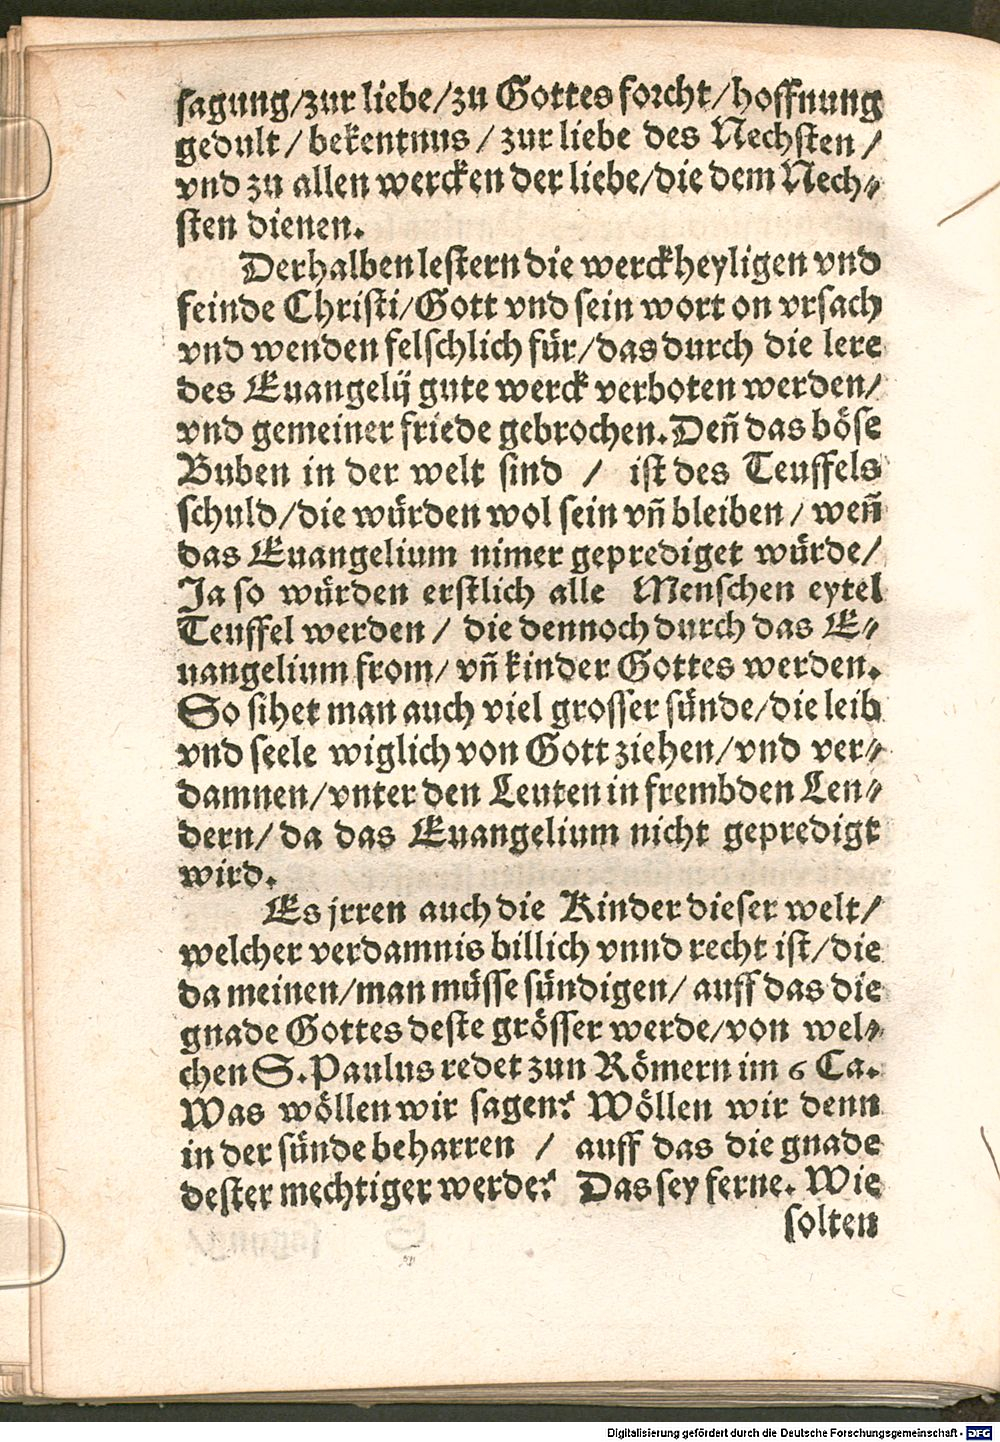 sagung/zur liebe/zu Gottes forcht/hoffnung
gedult / bekentnus / zur liebe des Nechsten /
vnd zu allen wercken der liebe/die dem Nech⸗
sten dienen.
Derhalben lestern die werckheyligen vnd
feinde Christi/Gott vnd sein wort on vrsach
vnd wenden felschlich für/das durch die lere
des Euangelij gute werck verboten werden/
vnd gemeiner friede gebrochen. Deñ das böse
Buben in der welt sind / ist des Teuffels
schuld/die würden wol sein vñ bleiben / weñ
das Euangelium nimer geprediget würde/
Ja so würden erstlich alle Menschen eytel
Teuffel werden / die dennoch durch das E⸗
uangelium from/ vñ kinder Gottes werden.
So sihet man auch viel grosser sünde/die leib
vnd seele wiglich von Gott ziehen/vnd ver⸗
damnen/vnter den Leuten in frembden Len⸗
dern/ da das Euangelium nicht gepredigt
wird.
Es jrren auch die Kinder dieser welt/
welcher verdamnis billich vnnd recht ist/die
da meinen/man müsse sündigen/ auff das die
gnade Gottes deste grösser werde/von wel⸗
chen S. Paulus redet zun Römern im 6 Ca.
Was wöllen wir sagen? Wöllen wir denn
in der sünde beharren / auff das die gnade
dester mechtiger werde? Das sey ferne. Wie
solten
Digitalisierung gefördert durch die Deutsche Forschungsgemeinschaft - DFG